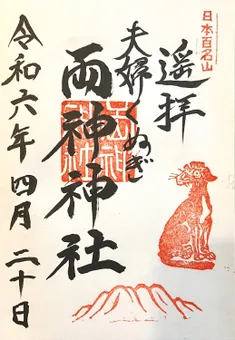 日本百名山
遥拝
夫婦くぬぎし
両神神社
令和六年四月二十日